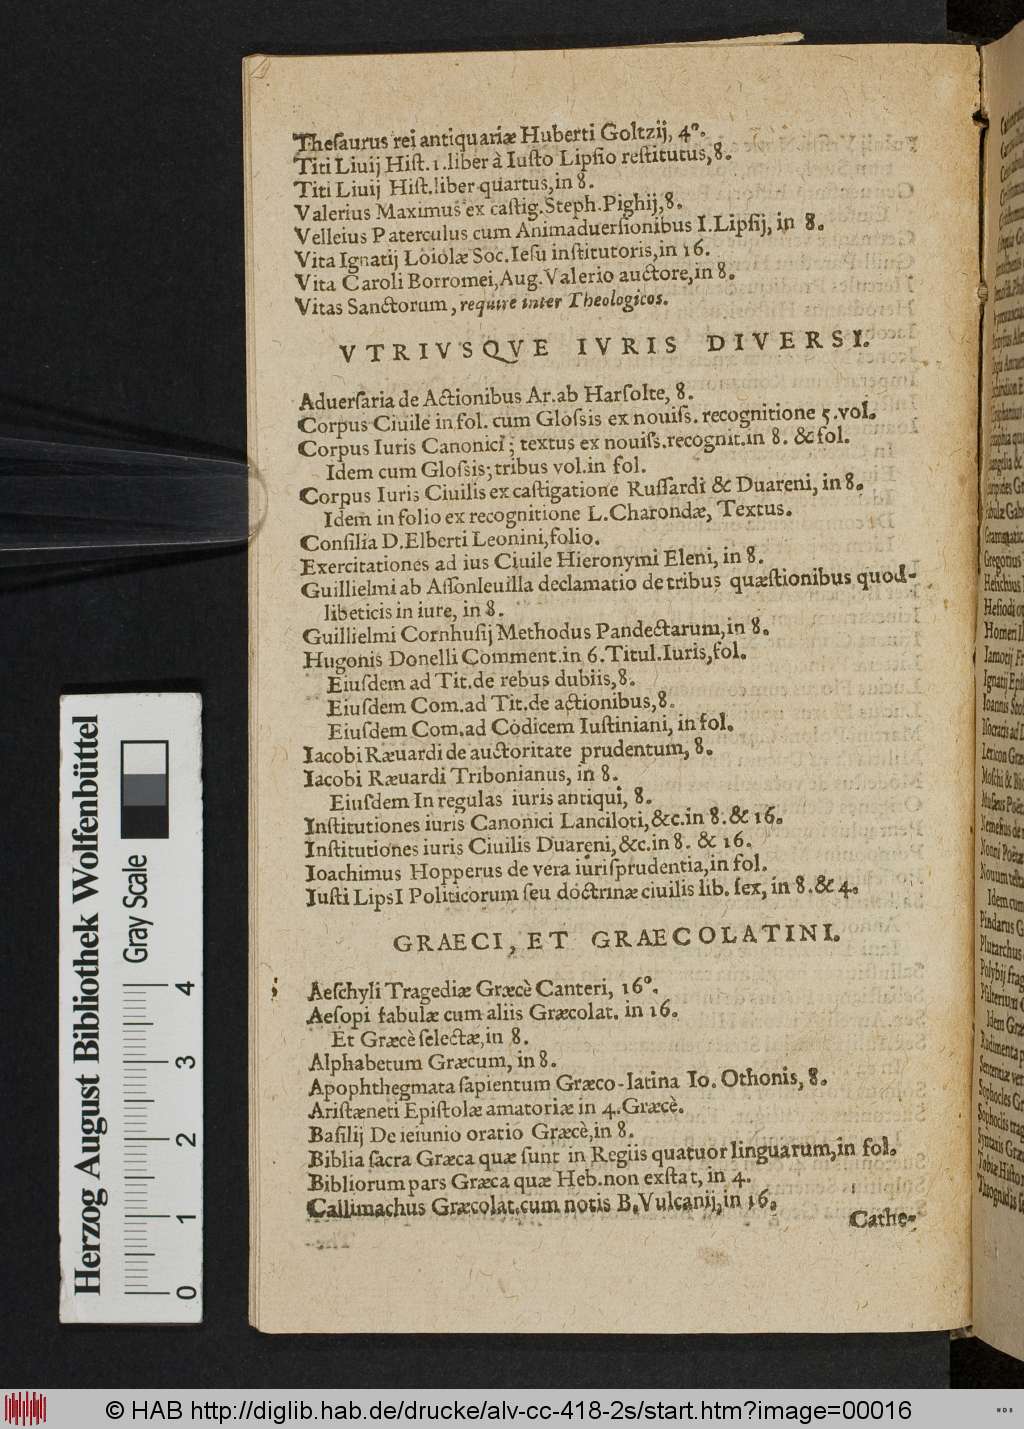 Theſaurus rei antiquariæ Huberti Goltzij, 4°.
Titi Liuij Hiſt. 1. liber à Iuſto Lipſio reſtitutus, 8.
Titi Liuij Hiſt. liber quartus, in 8.
Valerius Maximus ex caſtig. Steph. Pighij, 8.
Velleius Paterculus cum Animaduerſionibus I. Lipſij, in 8.
Vita Ignatij Loiolæ Soc. Ieſu inſtitutoris, in 16.
Vita Caroli Borromei, Aug. Valerio auctore, in 8.
Vitas Sanctorum, require inter Theologicos.
VTRIVSQVE IVRIS DIVERSI.
Aduerſaria de Actionibus Ar. ab Harſolte, 8.
Corpus Ciuile in fol. cum Gloſsis ex nouiſs. recognitione 5. vol.
Corpus Iuris Canonici; textus ex nouiſs. recognit. in 8. & fol.
Idem cum Gloſsis; tribus vol. in fol.
Corpus Iuris Ciuilis ex caſtigatione Ruſſardi & Duareni, in 8.
Idem in folio ex recognitione L. Charondæ, Textus.
Conſilia D. Elberti Leonini, folio.
Exercitationes ad ius Ciuile Hieronymi Eleni, in 8.
Guillielmi ab Aſſonleuilla declamatio de tribus quæſtionibus quod-
libeticis in iure, in 8.
Guillielmi Cornhuſij Methodus Pandectarum, in 8.
Hugonis Donelli Comment. in 6. Titul. Iuris, fol.
Eiuſdem ad Tit. de rebus dubiis, 8.
Eiuſdem Com. ad Tit. de actionibus, 8.
Eiuſdem Com. ad Codicem Iuſtiniani, in fol.
Iacobi Ræuardi de auctoritate prudentum, 8.
Iacobi Ræuardi Tribonianus, in 8.
Eiuſdem In regulas iuris antiqui, 8.
Inſtitutiones iuris Canonici Lanciloti, &c. in 8. & 16.
Inſtitutiones iuris Ciuilis Duareni, &c. in 8. & 16.
Ioachimus Hopperus de vera iuriſprudentia, in fol.
Iuſti LipsI Politicorum ſeu doctrinæ ciuilis lib. ſex, in 8. & 4.
GRAECI, ET GRAECOLATINI.
Aeſchyli Tragediæ Græcè Canteri, 16°.
Aeſopi fabulæ cum aliis Græcolat. in 16.
Et Græcè ſelectæ, in 8.
Alphabetum Græcum, in 8.
Apophthegmata ſapientum Græco-latina Io. Othonis, 8.
Ariſtæneti Epiſtolæ amatoriæ in 4. Græcè.
Baſilij De ieiunio oratio Græcè, in 8.
Biblia ſacra Græca quæ ſunt in Regiis quatuor linguarum, in fol.
Bibliorum pars Græca quæ Heb. non exſtat, in 4.
Callimachus Græcolat. cum notis B. Vulcanij, in 16.
Cathe-
Herzog August Bibliothek Wolfenbüttel
Gray Scale
0 1 2 3 4
© HAB http://diglib.hab.de/drucke/alv-cc-418-2s/start.htm?image=00016